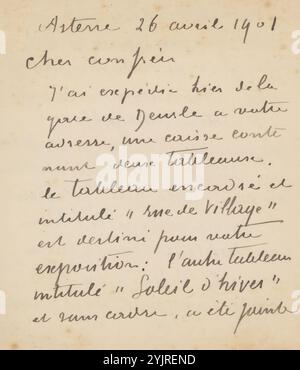 Astene 26 avril 1901
Cher confrère
J'ai expédié hier de la
gare de Deynze à votre
adresse, une caisse conte
nant deux tableaux.
le tableau encadré et
intitulé " rue de Village "
est destiné pour votre
exposition : l'autre tableau
intitulé " Soleil d'hiver "
et sans cadre, a été jointe
alamy
Image ID: 2YJREND
www.alamy.com